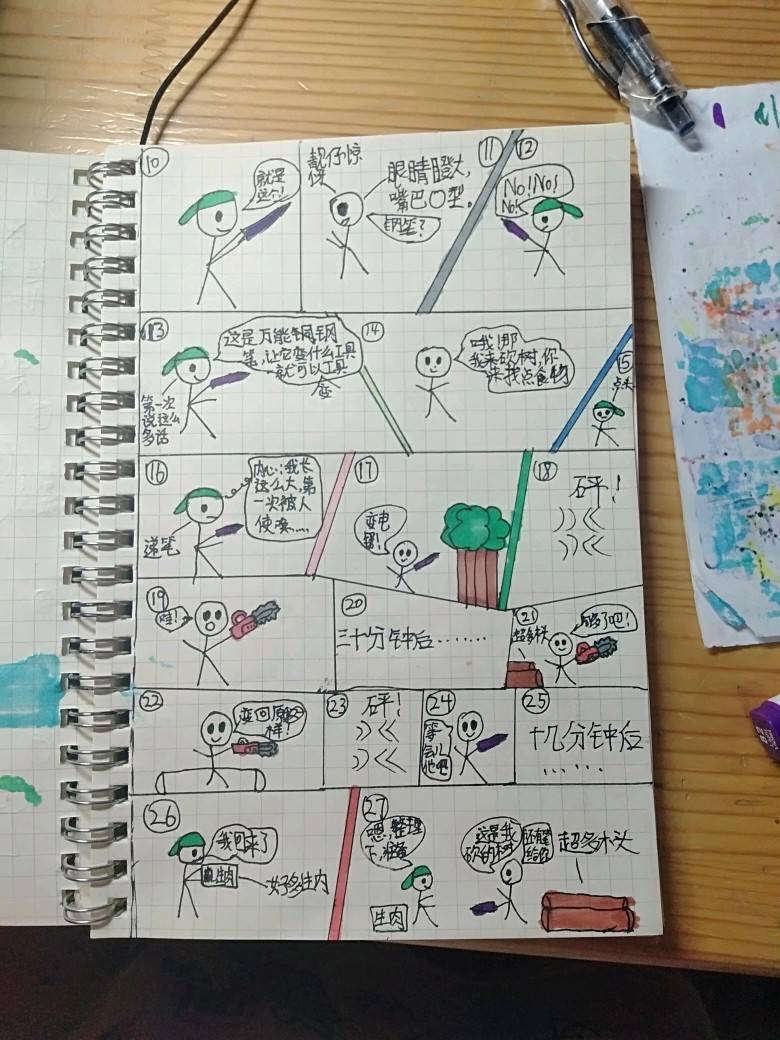 ⑩
就是
这个!
⑪
靓仔惊
讶
眼睛瞪大,
嘴巴O型。
钢笔?
⑫
No!No!
No!
⑬
这是万能钢钢
笔,让它变什么工具
就可以工具
变
第一次
说这么
多话
⑭
哦!那
我来砍树,你
来找点食物
⑮
点头
⑯
内心:我长
这么大,第
一次被人
使唤……
递笔
⑰
变电
锯!
⑱
砰!
⑲
哇!
⑳
三十分钟后………
㉑
超多木头
够了吧!
㉒
变回原
样!
㉓
砰!
㉔
等
会儿
他吧
㉕
十几分钟后
……
㉖
我回来了
生肉
好多生肉
㉗
嗯,整理
下,准备
生肉
这是我
砍的树
还有笔
给你
超多木头